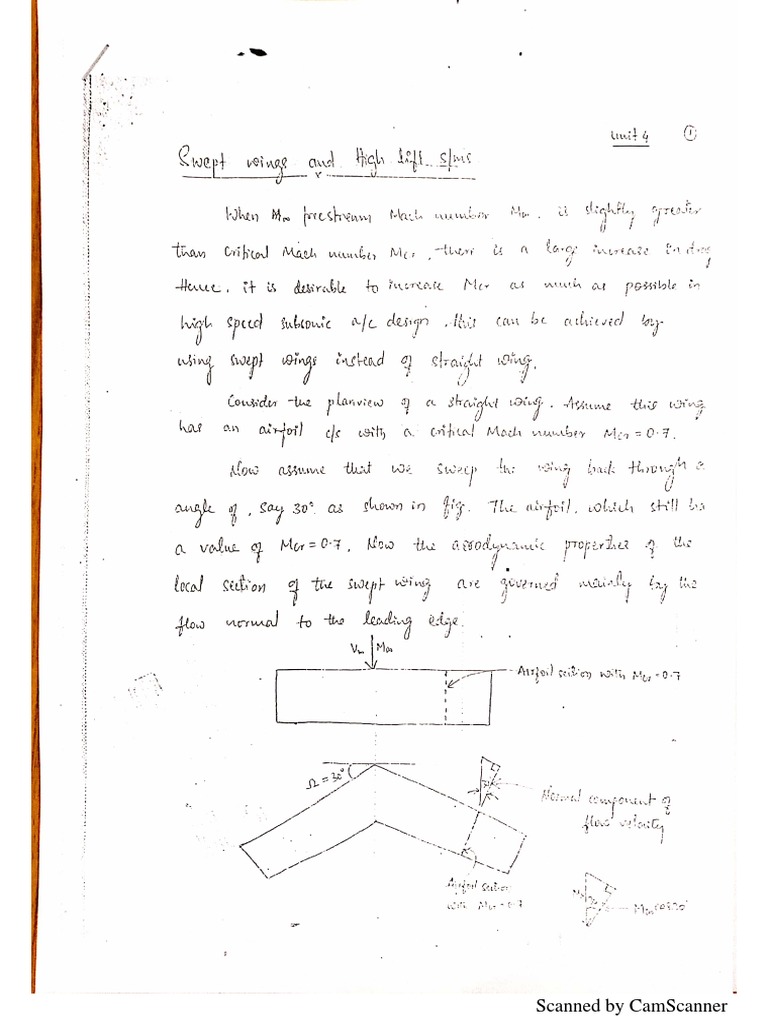 Unit 4 ①
Swept wings and High lift s/ms
When M∞ freestream Mach number M∞, is slightly greater
than Critical Mach number Mcr, there is a large increase in drag
Hence, it is desirable to increase Mcr as much as possible in
high speed subsonic a/c design. This can be achieved by
using swept wings instead of straight wing.
Consider the planview of a straight wing. Assume this wing
has an airfoil c/s with a critical Mach number Mcr = 0.7.
Now assume that we sweep the wing back through a
angle of, say 30° as shown in fig. The airfoil, which still ha
a value of Mcr = 0.7. Now the aerodynamic properties of the
local section of the swept wing are governed mainly by the
flow normal to the leading edge.
V∞ M∞
Airfoil section with Mcr = 0.7
Ω = 30°
30°
Normal component of
flow velocity
Airfoil section
with Mcr = 0.7
M∞
M∞ cos30°
Scanned by CamScanner